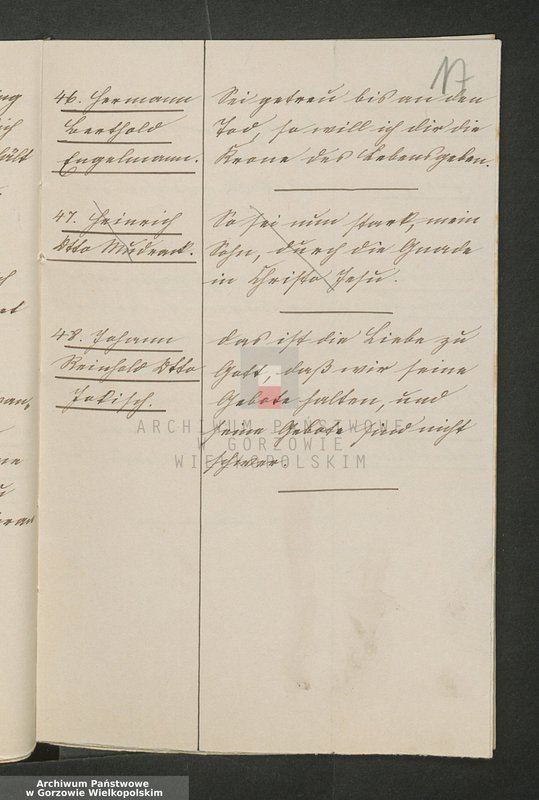 17
46. Hermann
Berthold
Engelmann.
Sei getreu bis an den
Tod, so will ich dir die
Krone des Lebens geben.
47. Heinrich
Otto Mudrack.
So sei nun stark, mein
Sohn, durch die Gnade
in Christo Jesu.
48. Johann
Reinhold Otto
Jokisch.
Das ist die Liebe zu
Gott, daß wir seine
Gebote halten, und
seine Gebote sind nicht
schwer.
ARCHIWUM PAŃSTWOWE
W GORZOWIE
WIELKOPOLSKIM
Archiwum Państwowe
w Gorzowie Wielkopolskim